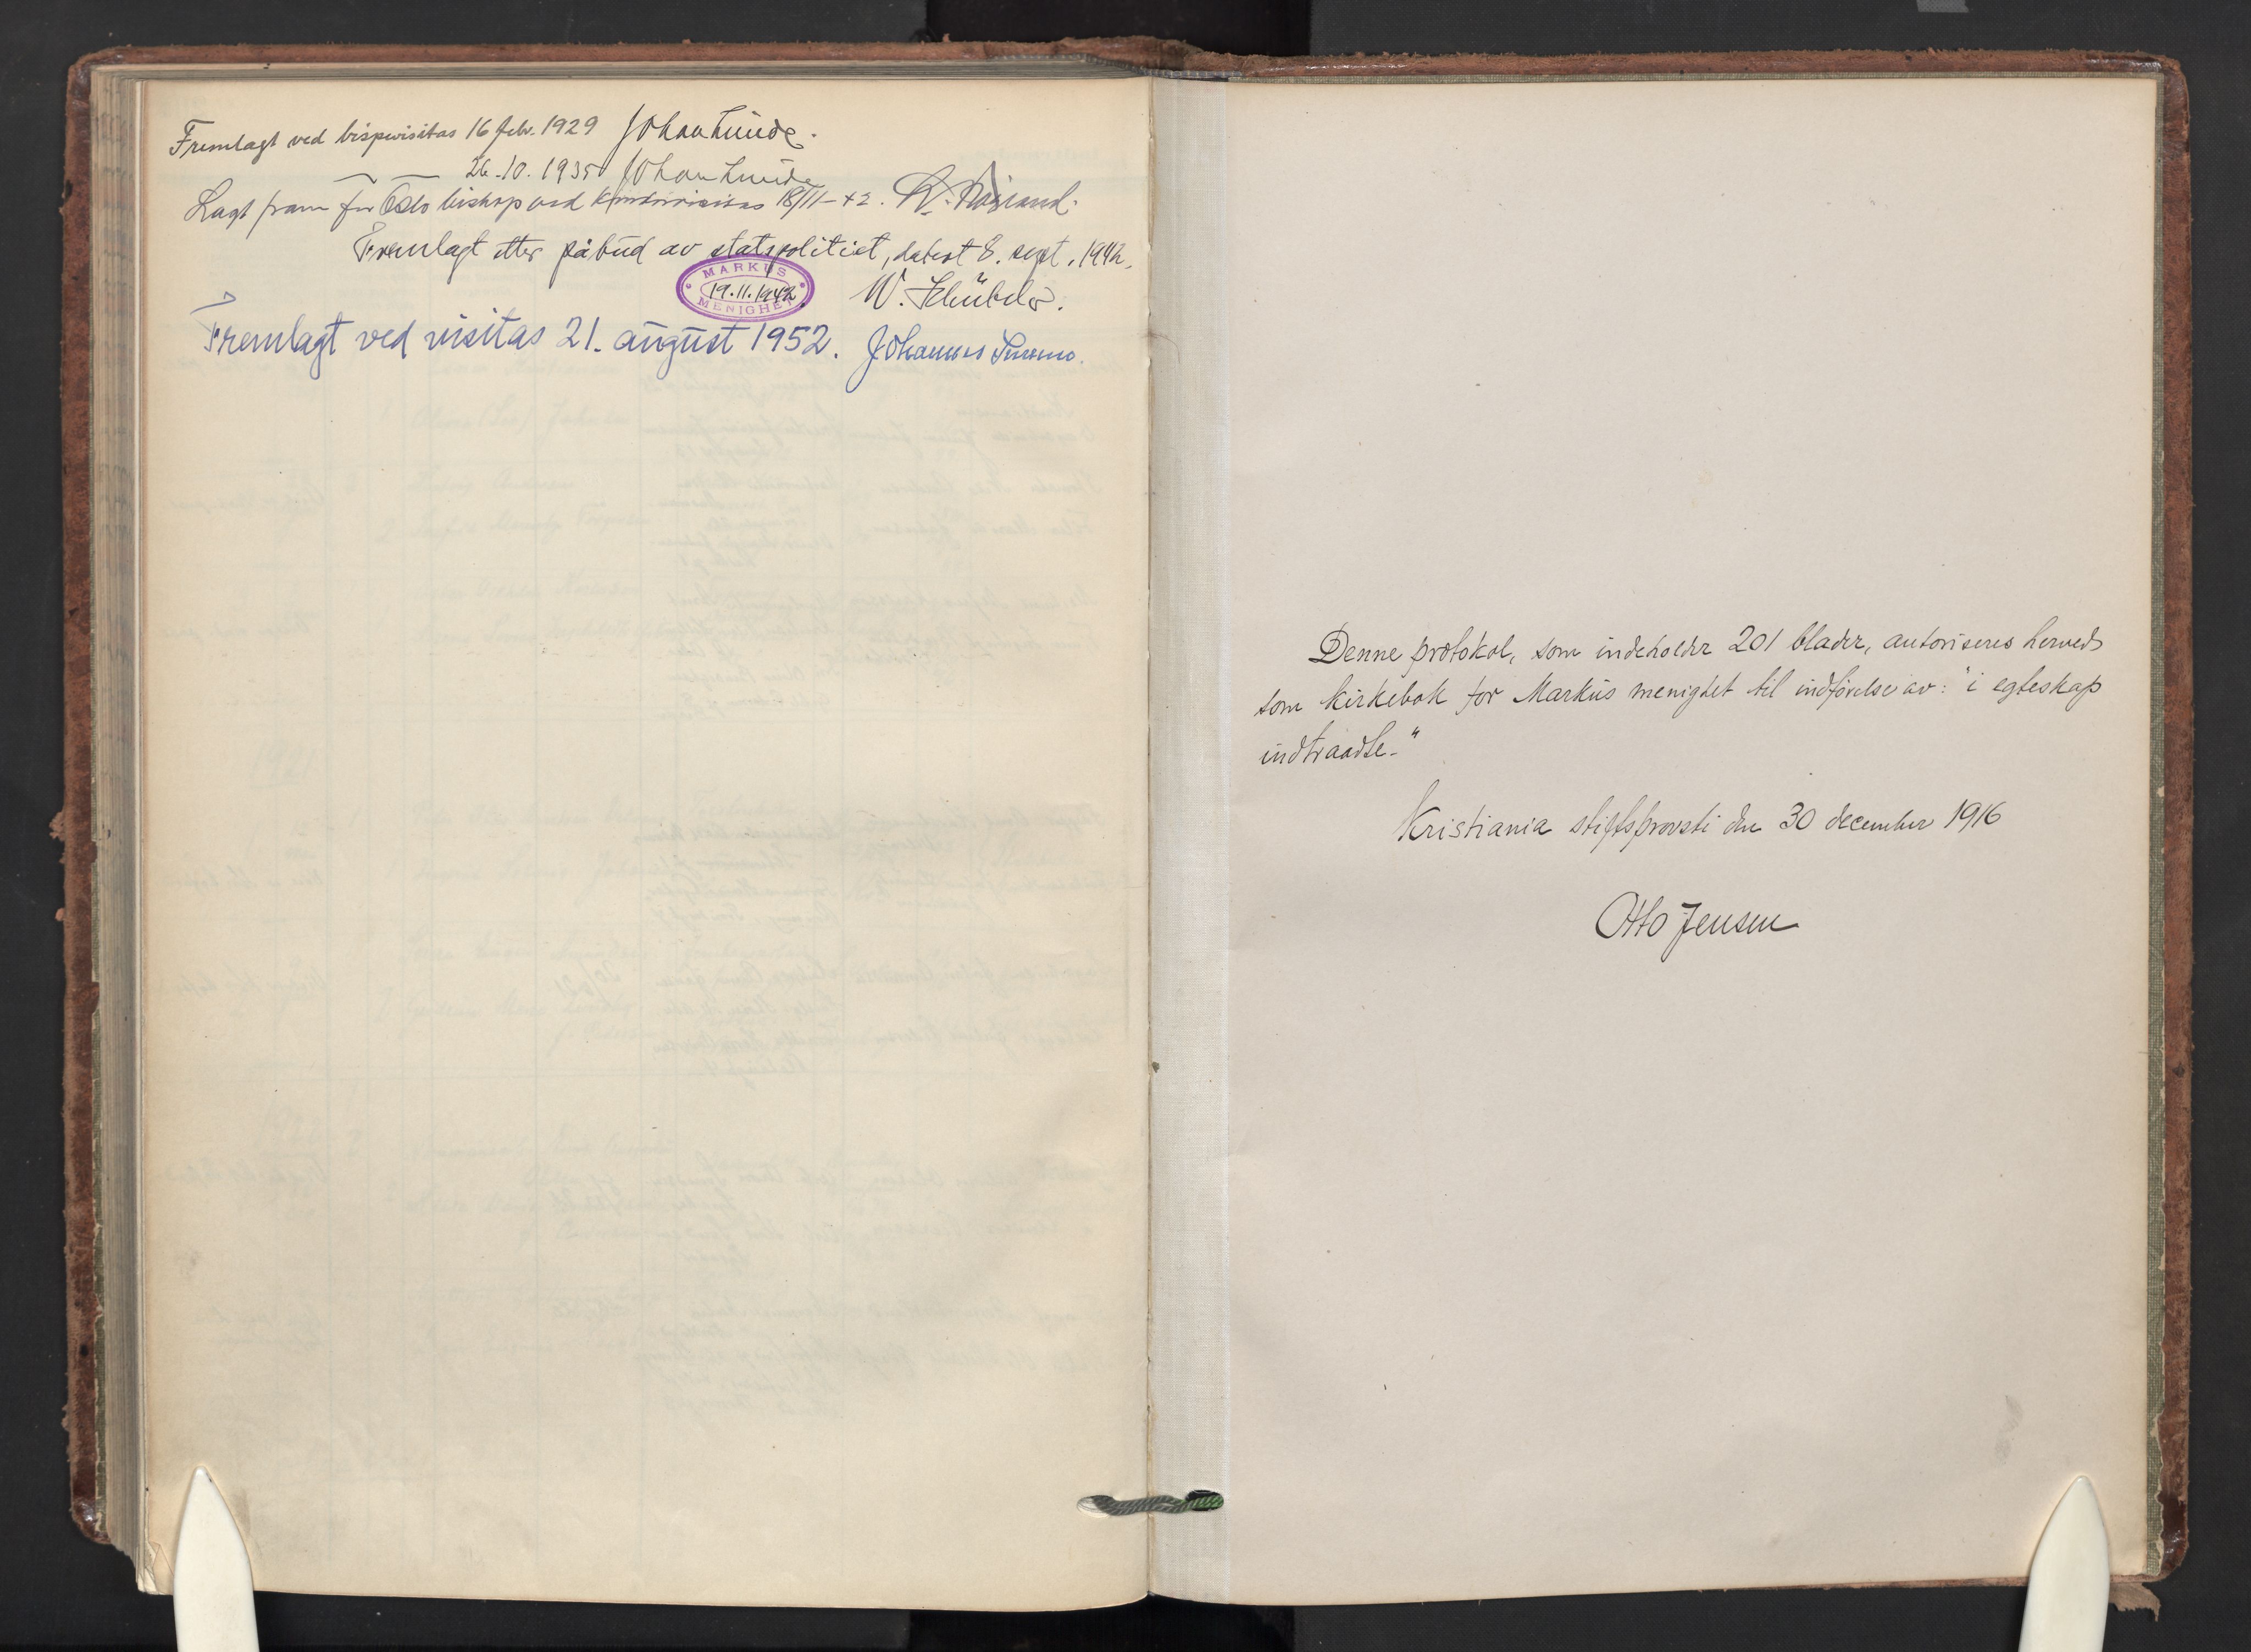 Fremlagt ved bispevisitas 16 febr. 1929 Johan Lunde.
26.10.1935 Johan Lunde
Lagt fram for Oslo biskop ved 18/11-42.
Fremlagt etter påbud av statspolitiet, datert 8. sept. 1942.
MARKUS
19.11.1942
MENIGHET
W. Schübeler.
Fremlagt ved visitas 21. august 1952. Johannes Smemo.
Denne protokol, som indeholder 201 blader, autoriseres herved
som kirkebok for Markus menighet til indførelse av: "i egteskap
indtraadte."
Kristiania stiftsprovsti den 30 december 1916
Otto Jensen